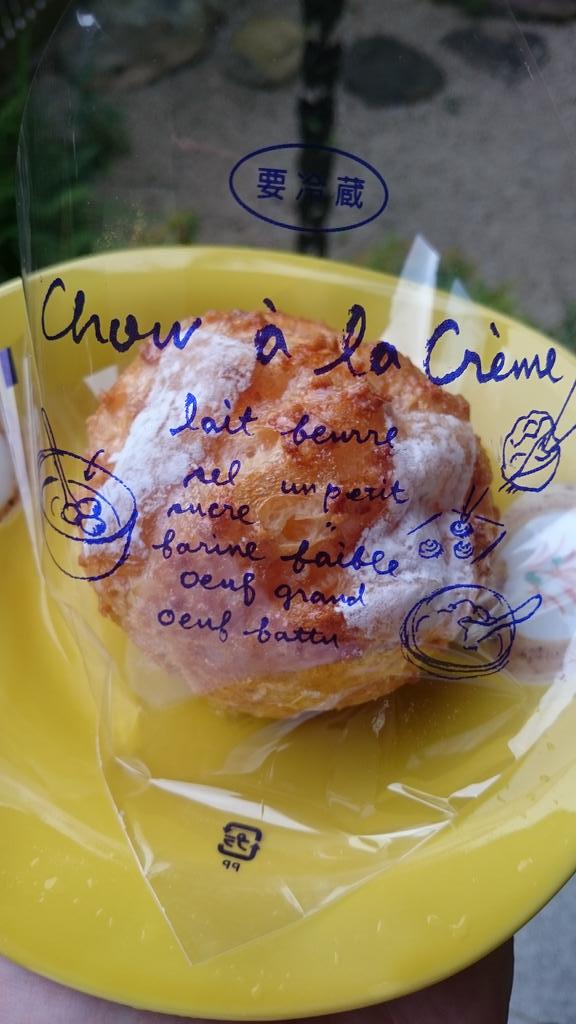 要冷蔵
Chou à la Crème
lait beurre
sel un petit
sucre "
farine faible
oeuf grand
oeuf battu
プラ
99